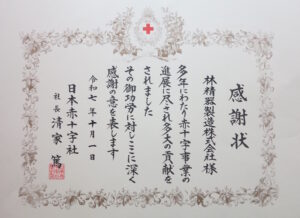 感謝状
林精器製造株式会社様
多年にわたり赤十字事業の
進展に尽され多大の貢献を
されました
その御功労に対しここに深く
感謝の意を表します
令和七年十月一日
日本赤十字社
社長 清家 篤